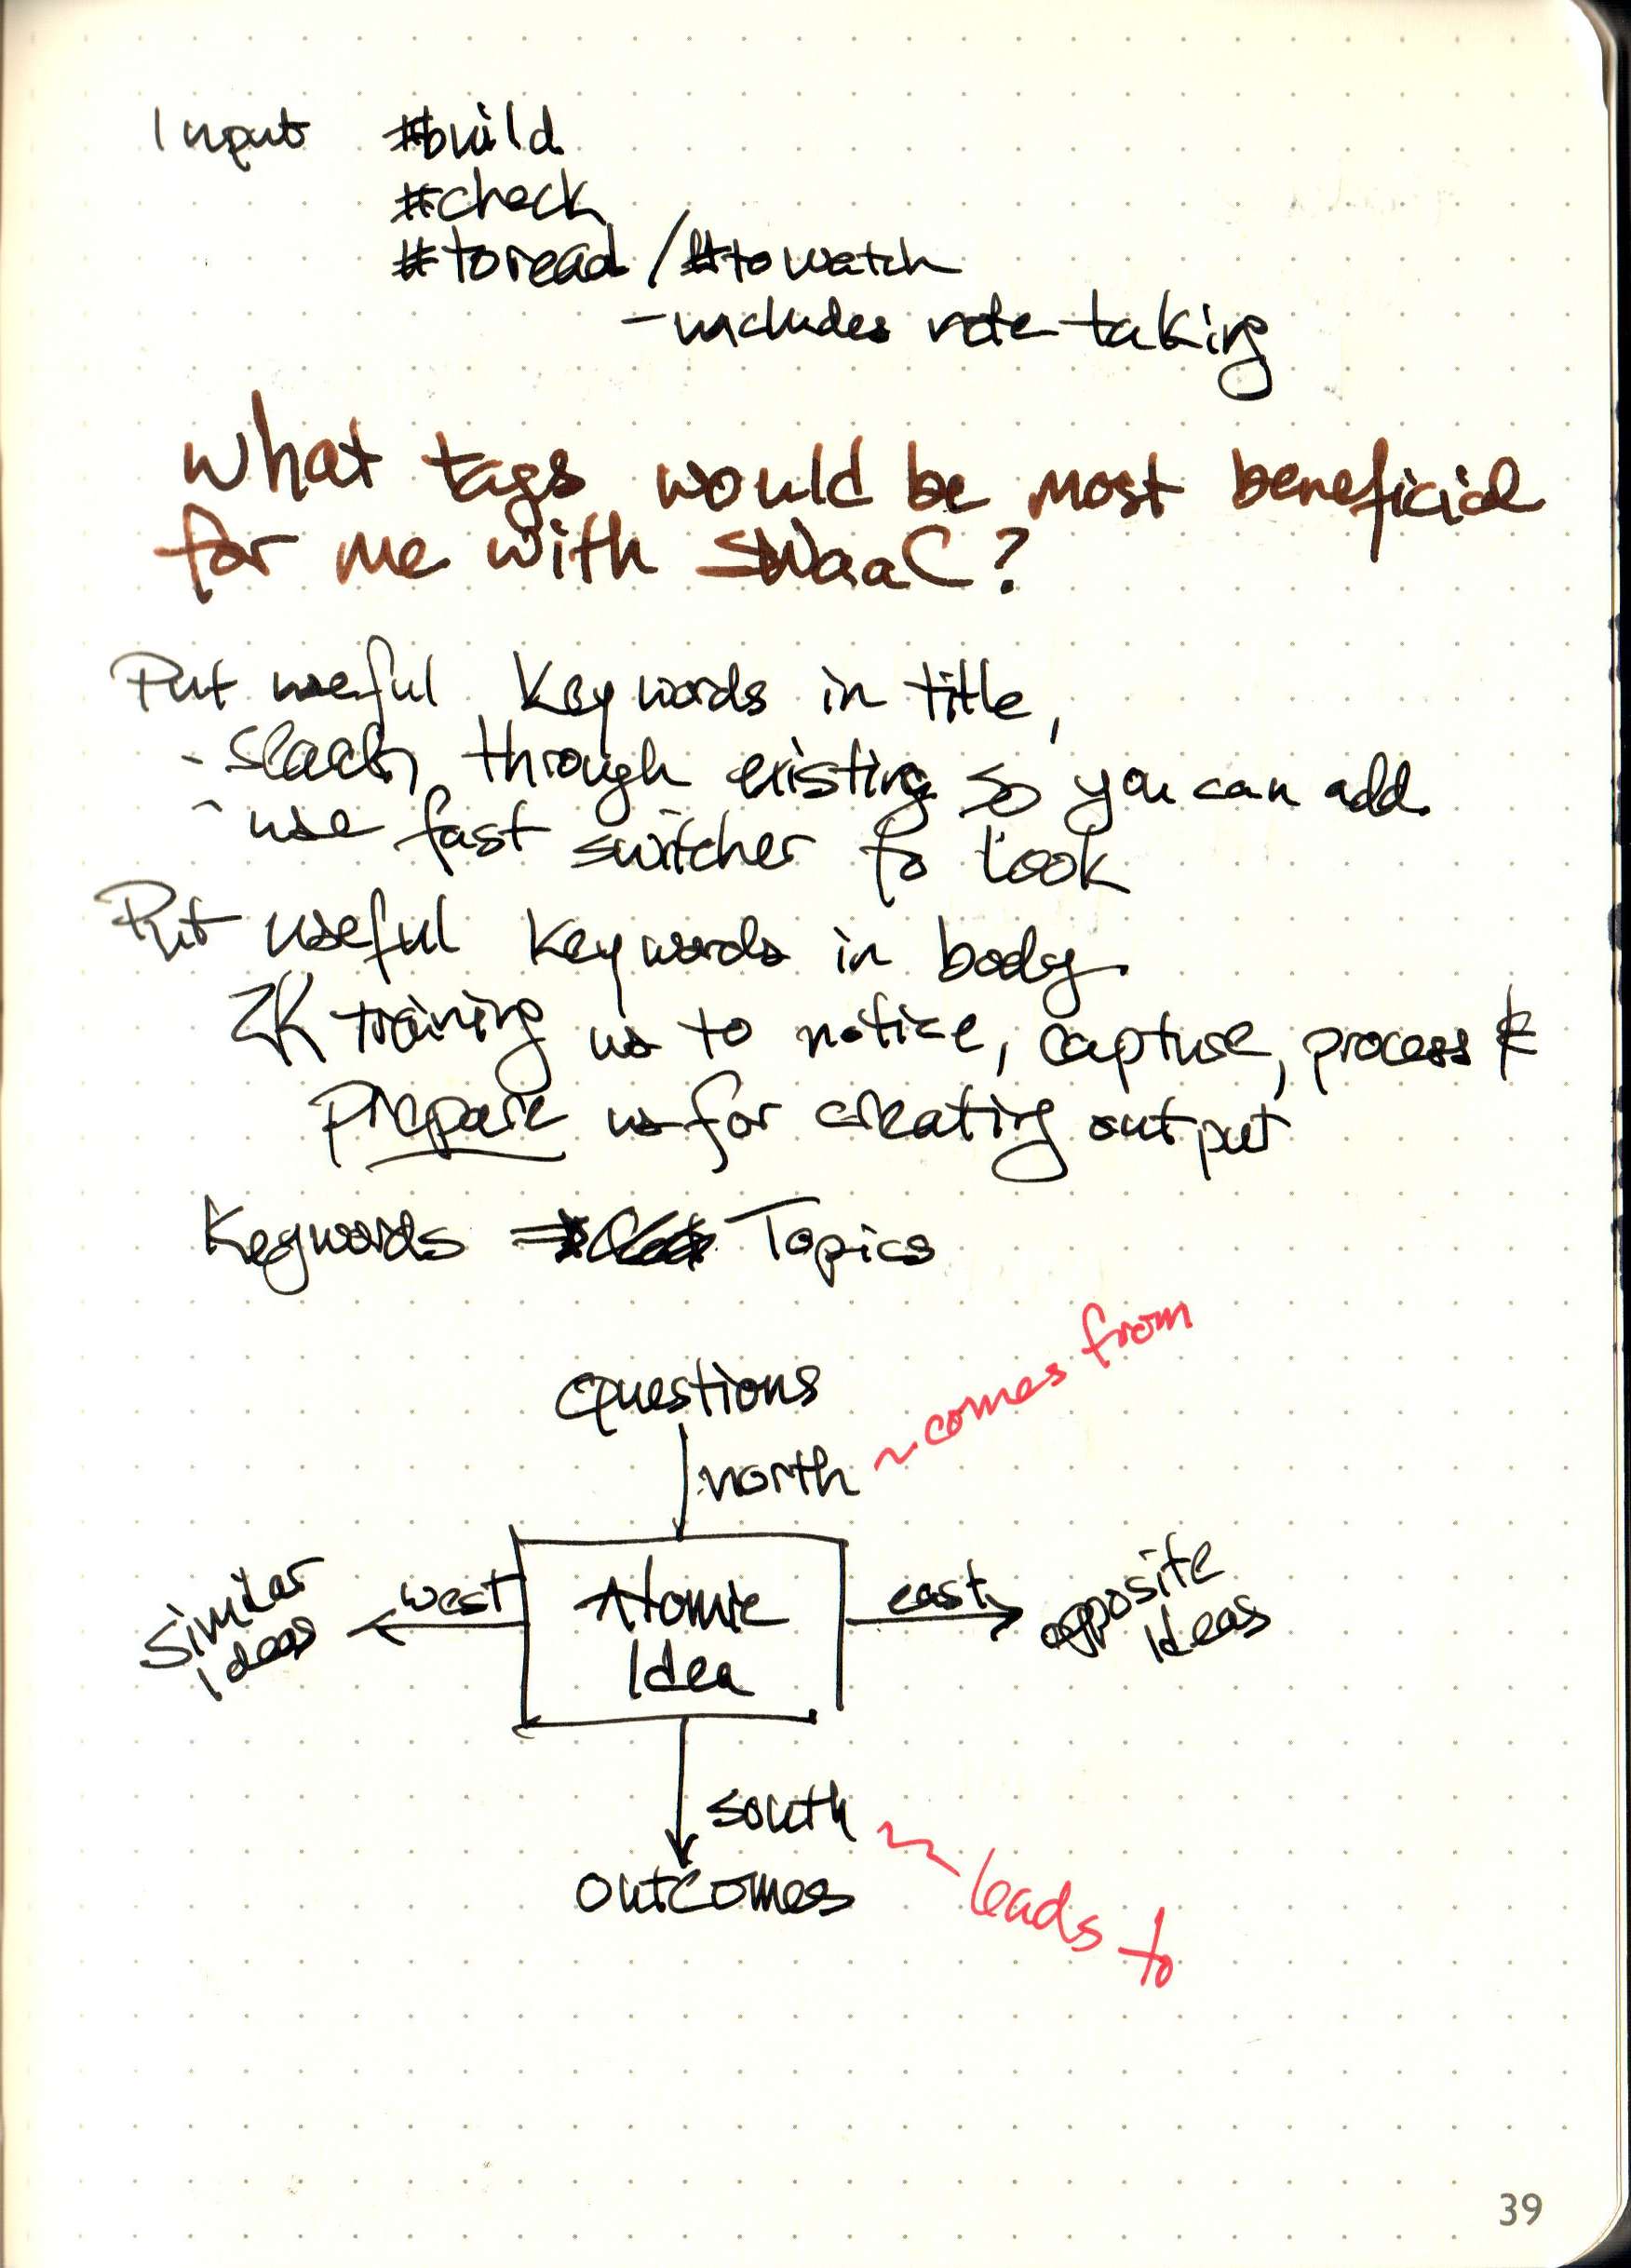 Input #build
#check
#toread / #towatch
- includes note taking
What tags would be most beneficial
for me with SWaaC?
Put useful keywords in title,
- through existing so you can add
- use fast switcher to look
Put useful keywords in body.
ZK training us to notice, capture, process &
prepare us for creating output
Keywords ⇒ Topics
questions
north ~ comes from
similar ideas
west
Atomic
Idea
east
opposite
ideas
south ~ leads to
outcomes
39